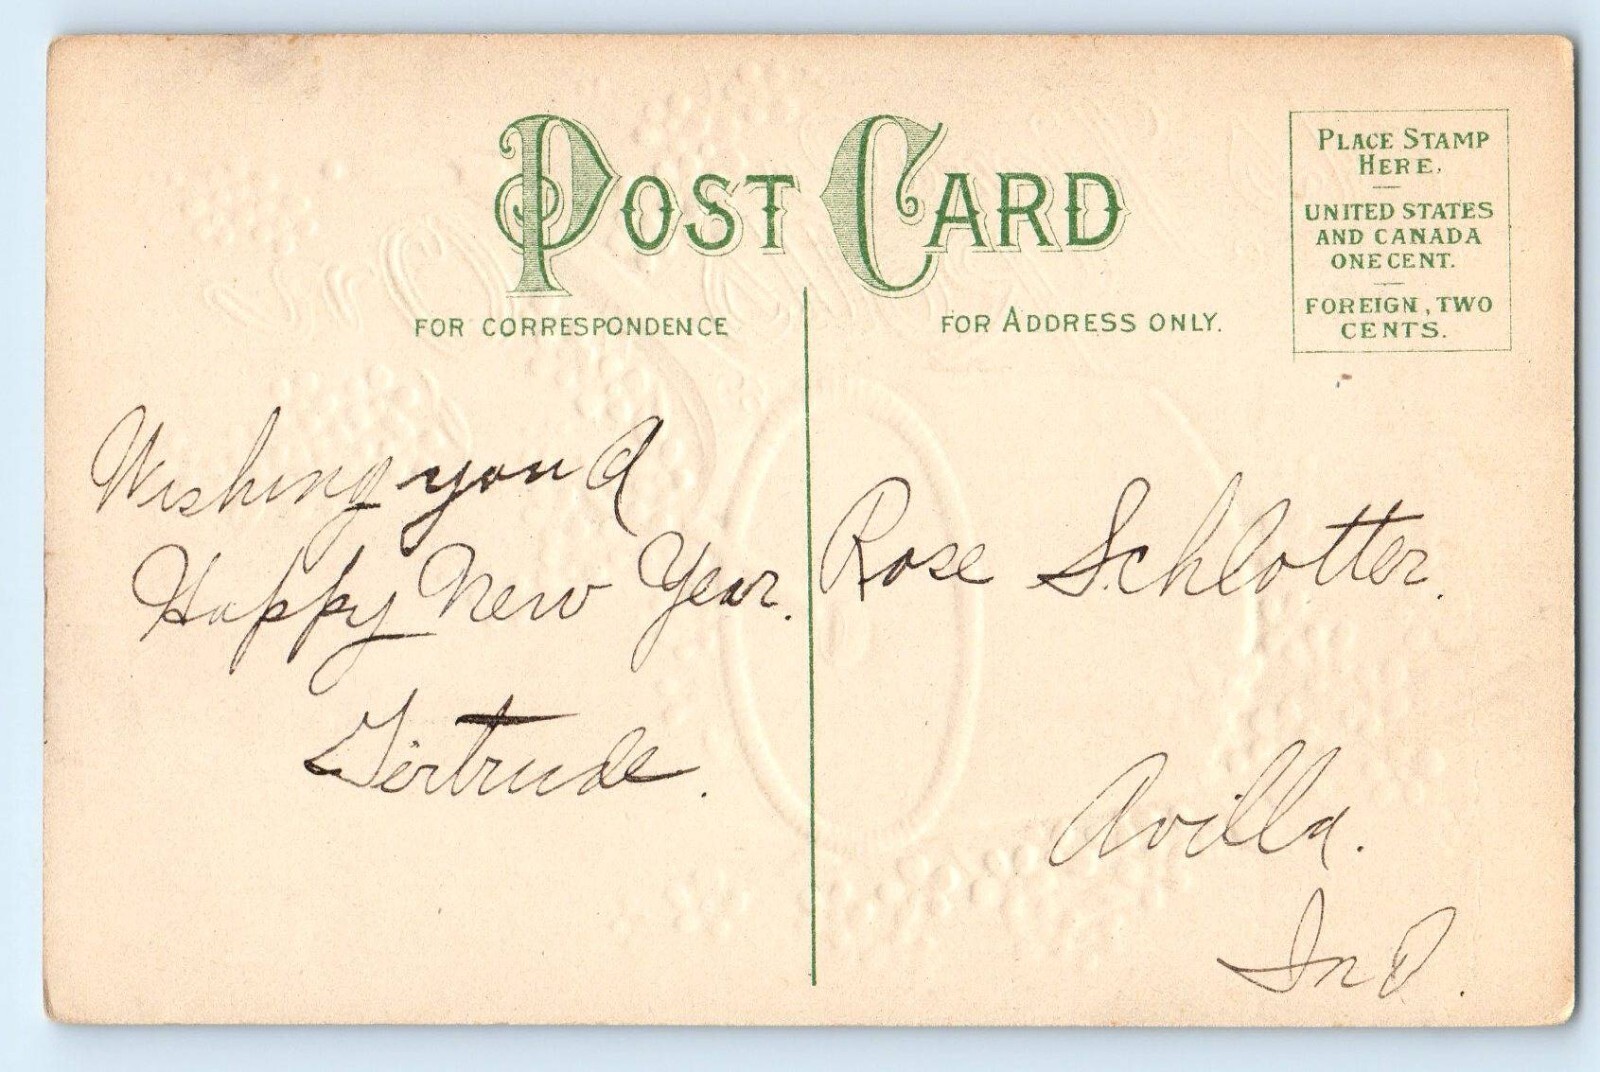 POST CARD
FOR CORRESPONDENCE
FOR ADDRESS ONLY.
PLACE STAMP
HERE.
UNITED STATES
AND CANADA
ONE CENT.
FOREIGN, TWO
CENTS.
Wishing you A
Happy New Year.
Gertrude.
Rose Schlotter.
Avilla.
Ind.